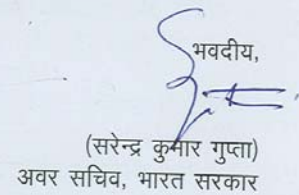 भवदीय,
(सरेन्द्र कुमार गुप्ता)
अवर सचिव, भारत सरकार